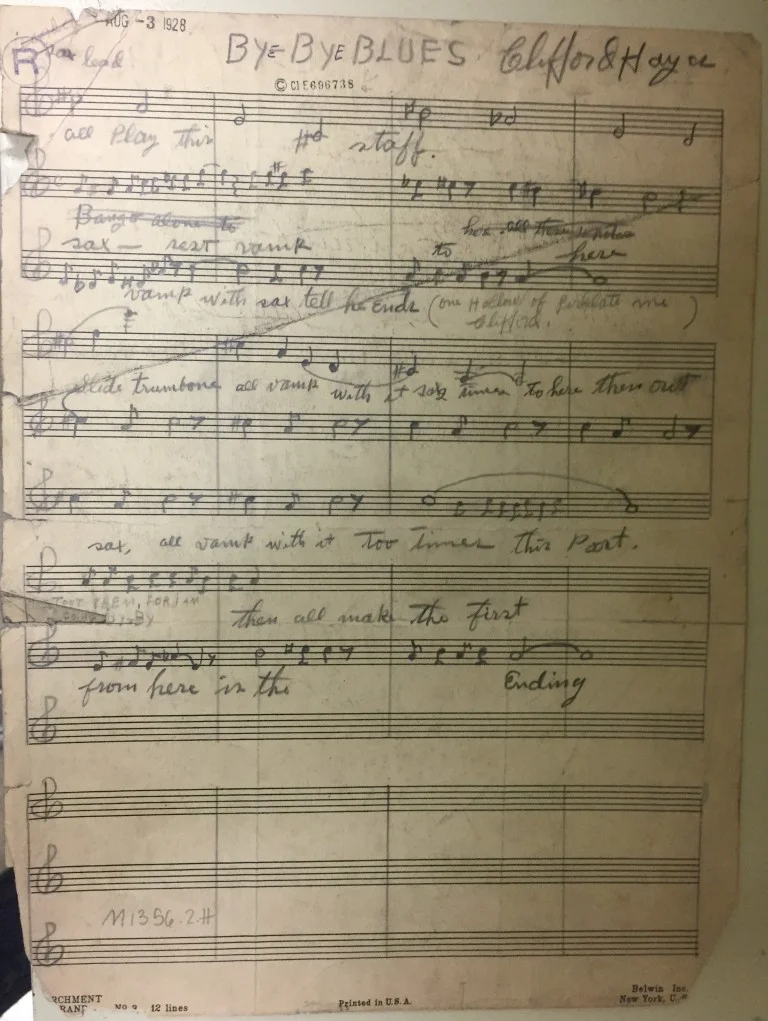 AUG -3 1928
R
sax lead
BYE-BYE BLUES. Clifford Hayes
© C1E696738
all Play this staff.
Banjo alone to
sax — rest vamp
to here
vamp with sax tell he ends (one Hollow of me Clifford.)
slide trombone all vamp with it sax times to here then out
sax, all vamp with it too times this Part.
then all make the first
from here is the Ending
M1356.2.H
PARCHMENT BRAND No 2 12 lines
Printed in U.S.A.
Belwin Inc.
New York, U.S.A.